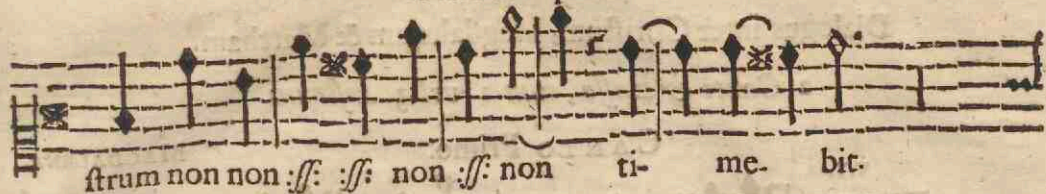 ſtrum non non :ſſ: :ſſ: non :ſſ: non ti- me- bit.